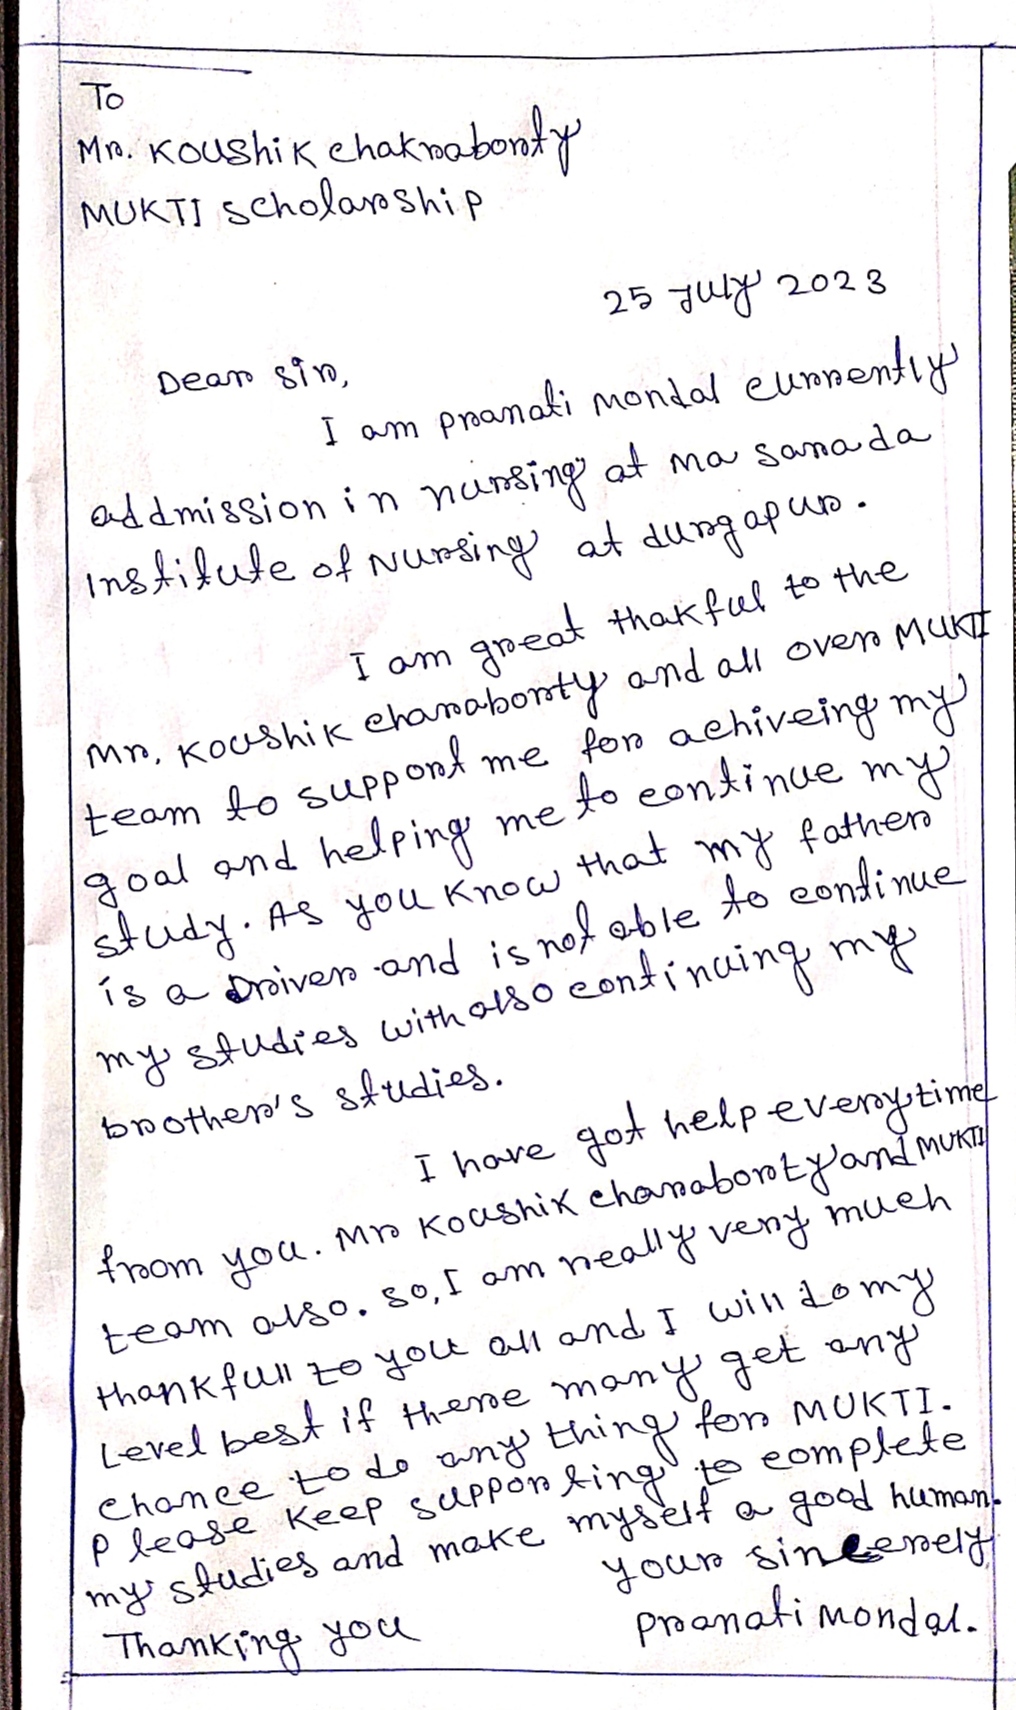 To
Mr. Koushik chakraborty
MUKTI scholarship
25 July 2023
Dear sir,
I am pranati Mondal currently
addmission in nursing at Ma sarada
Institute of Nursing at durgapur.
I am great thakful to the
Mr. Koushik charaborty and all over MUKTI
team to support me for achiveing my
goal and helping me to continue my
study. As you know that my father
is a Driver and is not able to continue
my studies with also continuing my
brother's studies.
I have got help every time
from you. Mr Koushik charaborty and MUKTI
team also. so, I am really very much
thankfull to you all and I will do my
Level best if there many get any
chance to do any thing for MUKTI.
Please Keep supporting to complete
my studies and make myself a good human.
your sincerely
Thanking you
pranati Mondal.